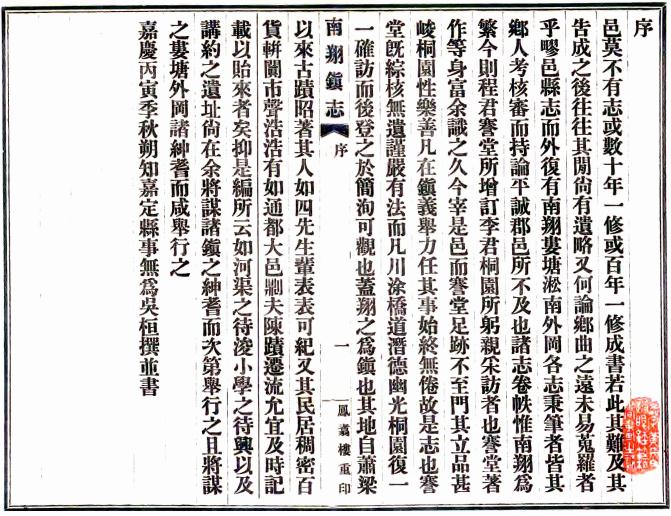 序
邑莫不有志或數十年一修或百年一修成書若此其難及其
告成之後往往其閒尙有遺略又何論鄉曲之遠未易蒐羅者
乎嘐邑縣志而外復有南翔婁塘淞南外岡各志秉筆者皆其
鄉人考核審而持論平誠郡邑所不及也諸志卷帙惟南翔爲
繁今則程君謇堂所增訂李君桐園所躬親宋訪者也謇堂著
作等身富余識之久今宰是邑而謇堂足跡不至門其立品甚
峻桐園性樂善凡在鎭義舉力任其事始終無倦故是志也謇
堂旣綜核無遺謹嚴有法而凡川涂橋道潛德幽光桐園復一
一確訪而後登之於簡洵可觀也蓋翔之爲鎭也其地自蕭梁
南翔鎭志
序
一
鳳翥樓重印
以來古蹟昭著其人如四先生輩表表可紀又其民居稠密百
貨輧闐市聲浩浩有如通都大邑剬夫陳蹟遷流允宜及時記
載以貽來者矣抑是編所云如河渠之待浚小學之待興以及
講約之遺址尙在余將謀諸鎭之紳耆而次第舉行之且將謀
之婁塘外岡諸紳耆而咸舉行之
嘉慶丙寅季秋朔知嘉定縣事無爲吳桓撰並書